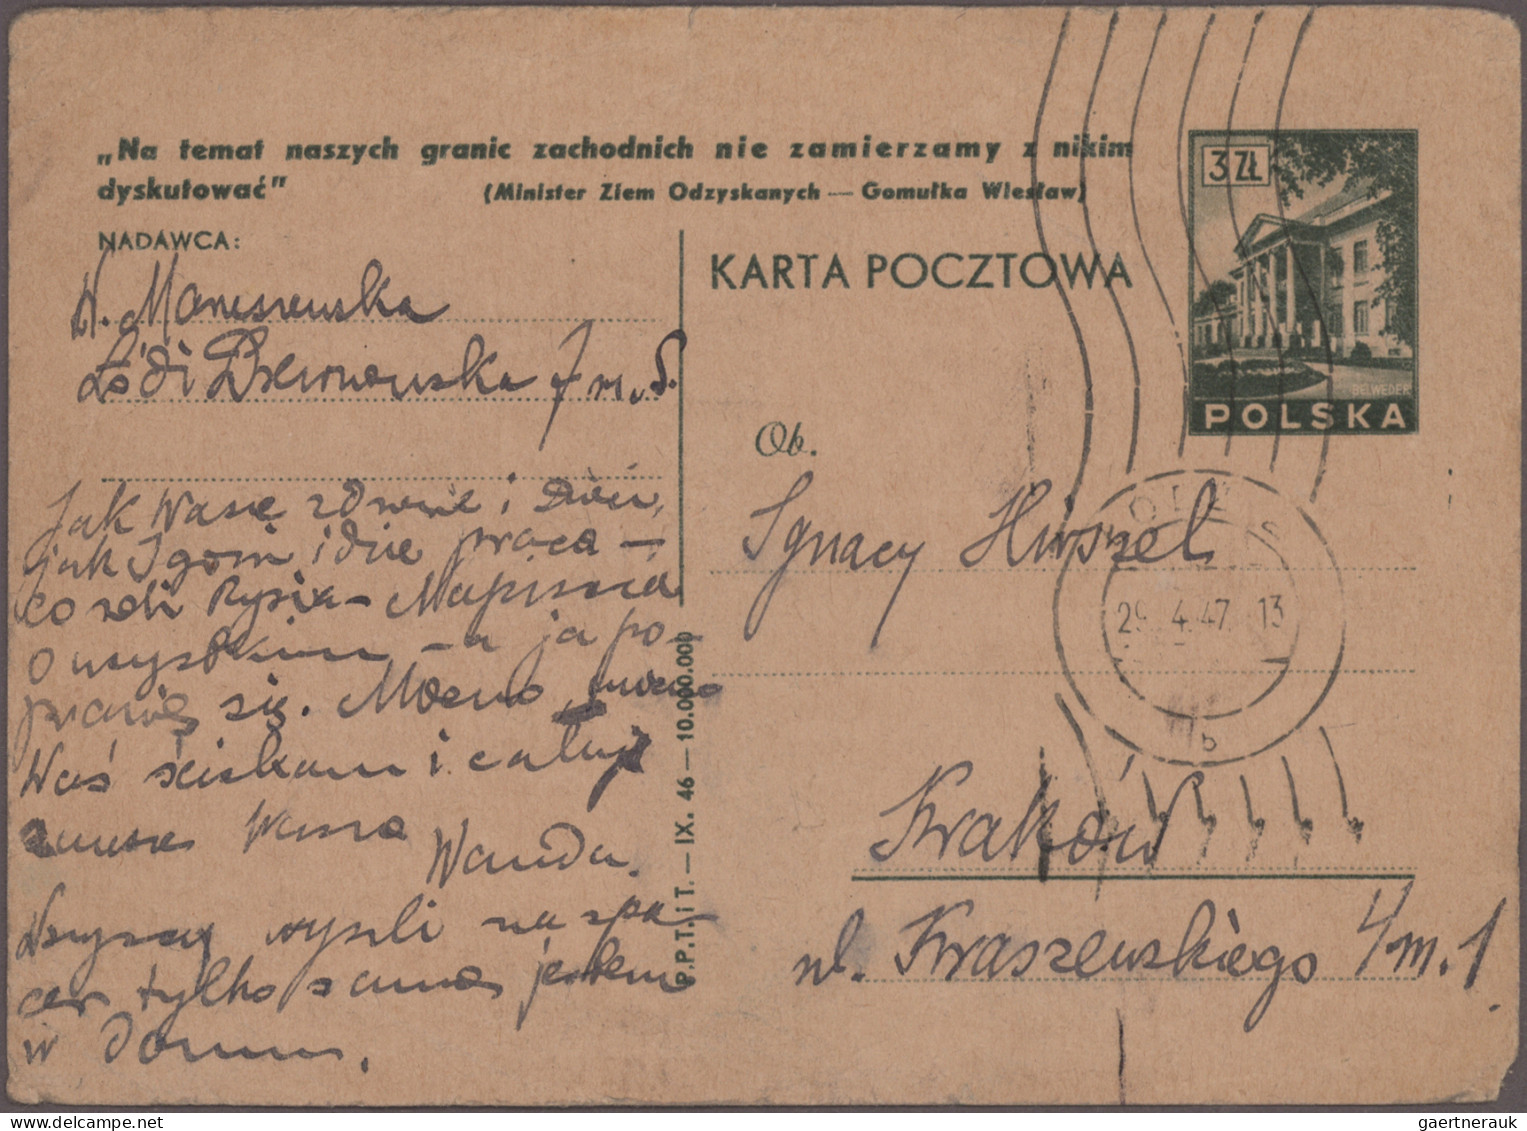 „Na temat naszych granic zachodnich nie zamierzamy z nikim
dyskutować" (Minister Ziem Odzyskanych — Gomułka Wiesław)
NADAWCA:
KARTA POCZTOWA
3 ZŁ
BELWEDER
POLSKA
W.
Łódź 7 m.
Jak Wasze i
jak idzie praca —
co robi Rysia —
o wszystkim — a ja po-
prawię się. Mocno, mocno
Was ściskam i całuję
zawsze Wasza
Wanda.
Wszyscy wyszli na spa-
cer tylko sama jestem
w domu.
Ob.
Ignacy Hirszel
Kraków
ul. Kraszewskiego 4 m. 1
29. 4. 47. 13
b
P.P.T. i T. — IX. 46 — 10.000.000
gaertnerauk